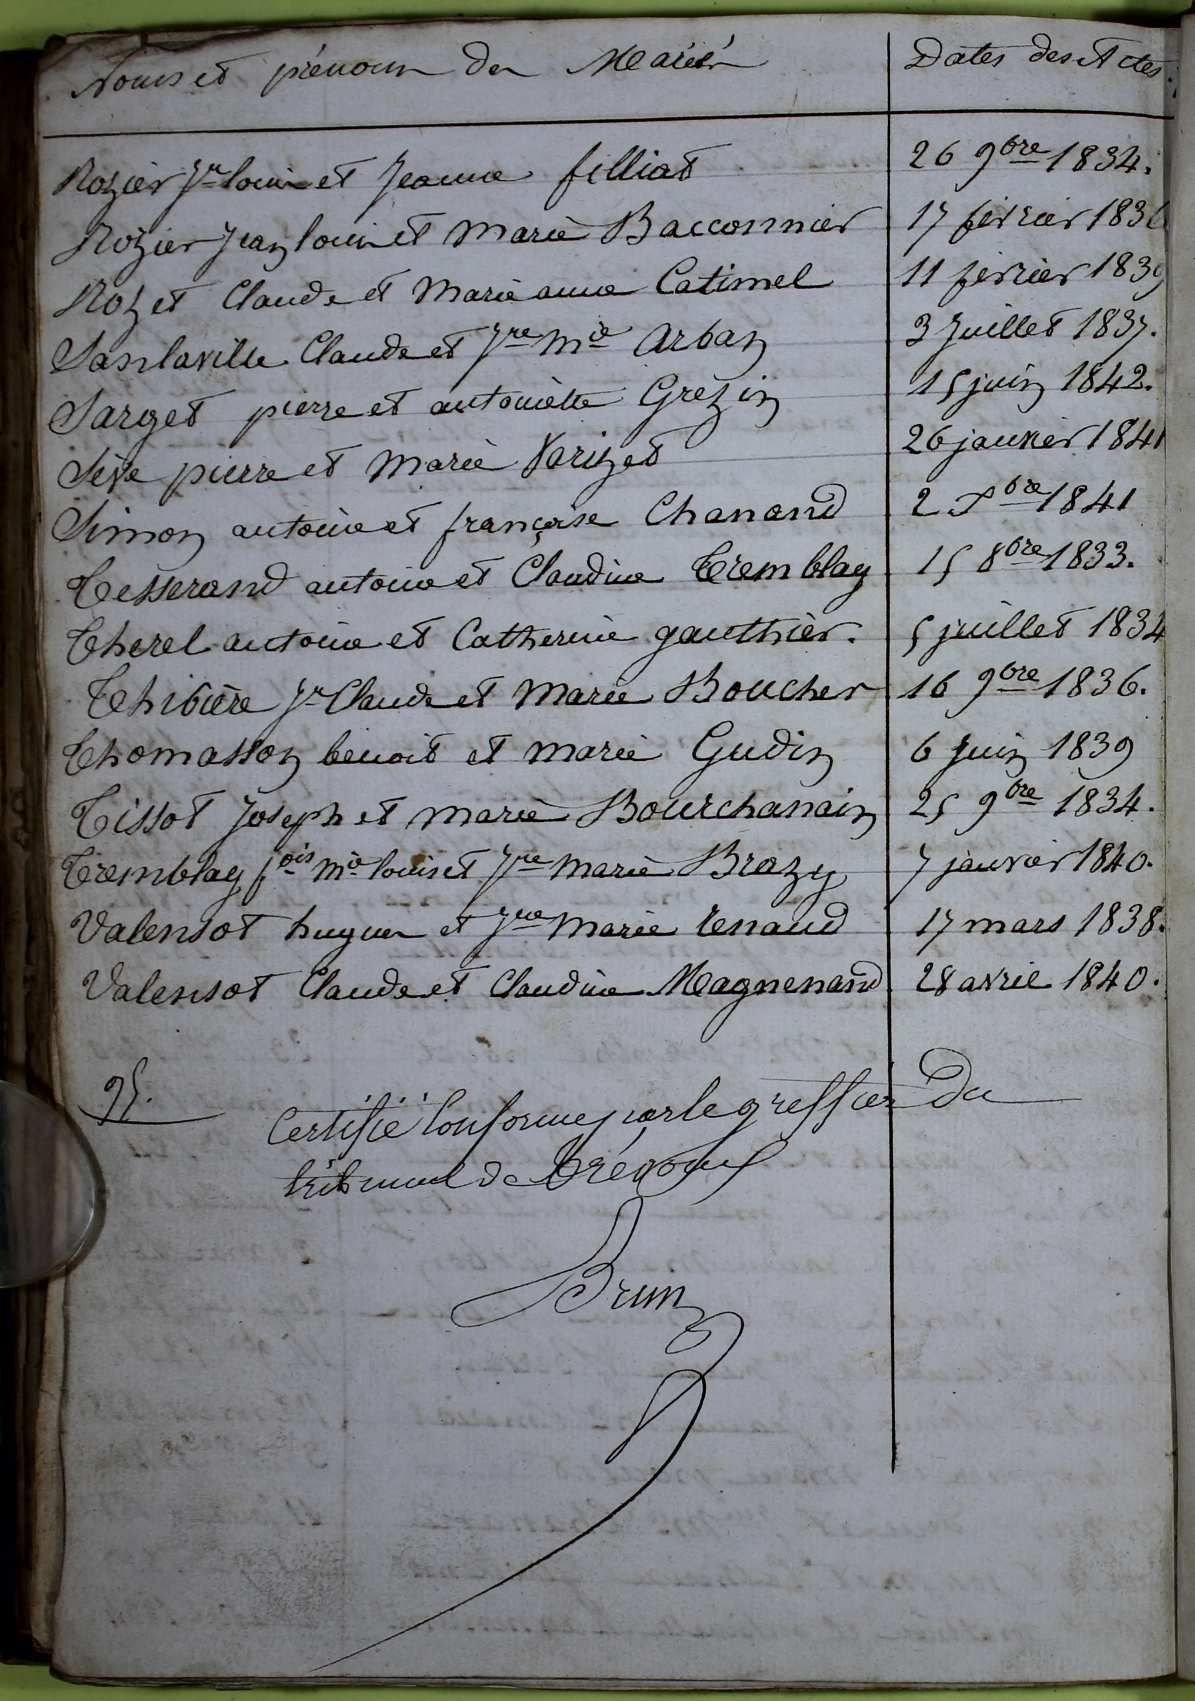 Noms et prénoms des Mariés Dates des Actes.
Rozier Jn louis et Jeanne filliat 26 9bre 1834.
Rozier Jean louis et Marie Bacconnier 17 février 1836
Rozet Claude et Marie anne Catimel 11 février 1839
Sanlaville Claude et Jne Mie Arban 3 Juillet 1837.
Sarget pierre et antoinette Grézin 15 juin 1842.
Sève pierre et Marie Varizet 26 janvier 1841
Simon antoine et françoise Chanand 2 Xbre 1841
Tesserand antoine et Claudine Tremblay 15 8bre 1833.
Therel antoine et Catherine gauthier. 5 juillet 1834
Thibière Jn Claude et Marie Boucher 16 9bre 1836.
Thomasson benoit et marie Gudin 6 Juin 1839
Tissot Joseph et marie Bourchanain 25 9bre 1834.
Tremblay fois Mie louis et Jne Marie Brazy 7 janvier 1840.
Valensot hugues et Jne Marie renaud 17 mars 1838.
Valensot Claude et Claudine Magnenand 28 avril 1840.
95.
Certifié Conforme par le greffier Du
tribunal de Trévoux
Brun